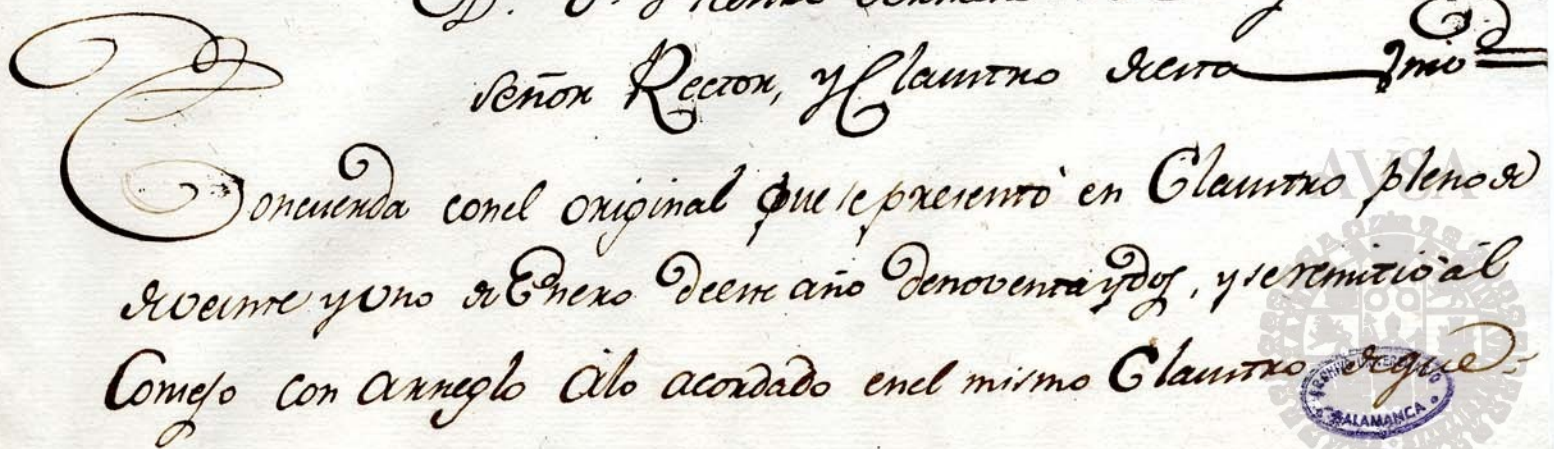 Señor Rector, y Claustro desta Univ.d
AVSA
Concuerda conel original que se presentó en Claustro pleno de
de veinte y uno de Enero deeste año denoventa y dos, y se remitió àl
Consejo con arreglo àlo acordado enel mismo Claustro deque
ARCHIVO UNIVERSITARIO
SALAMANCA